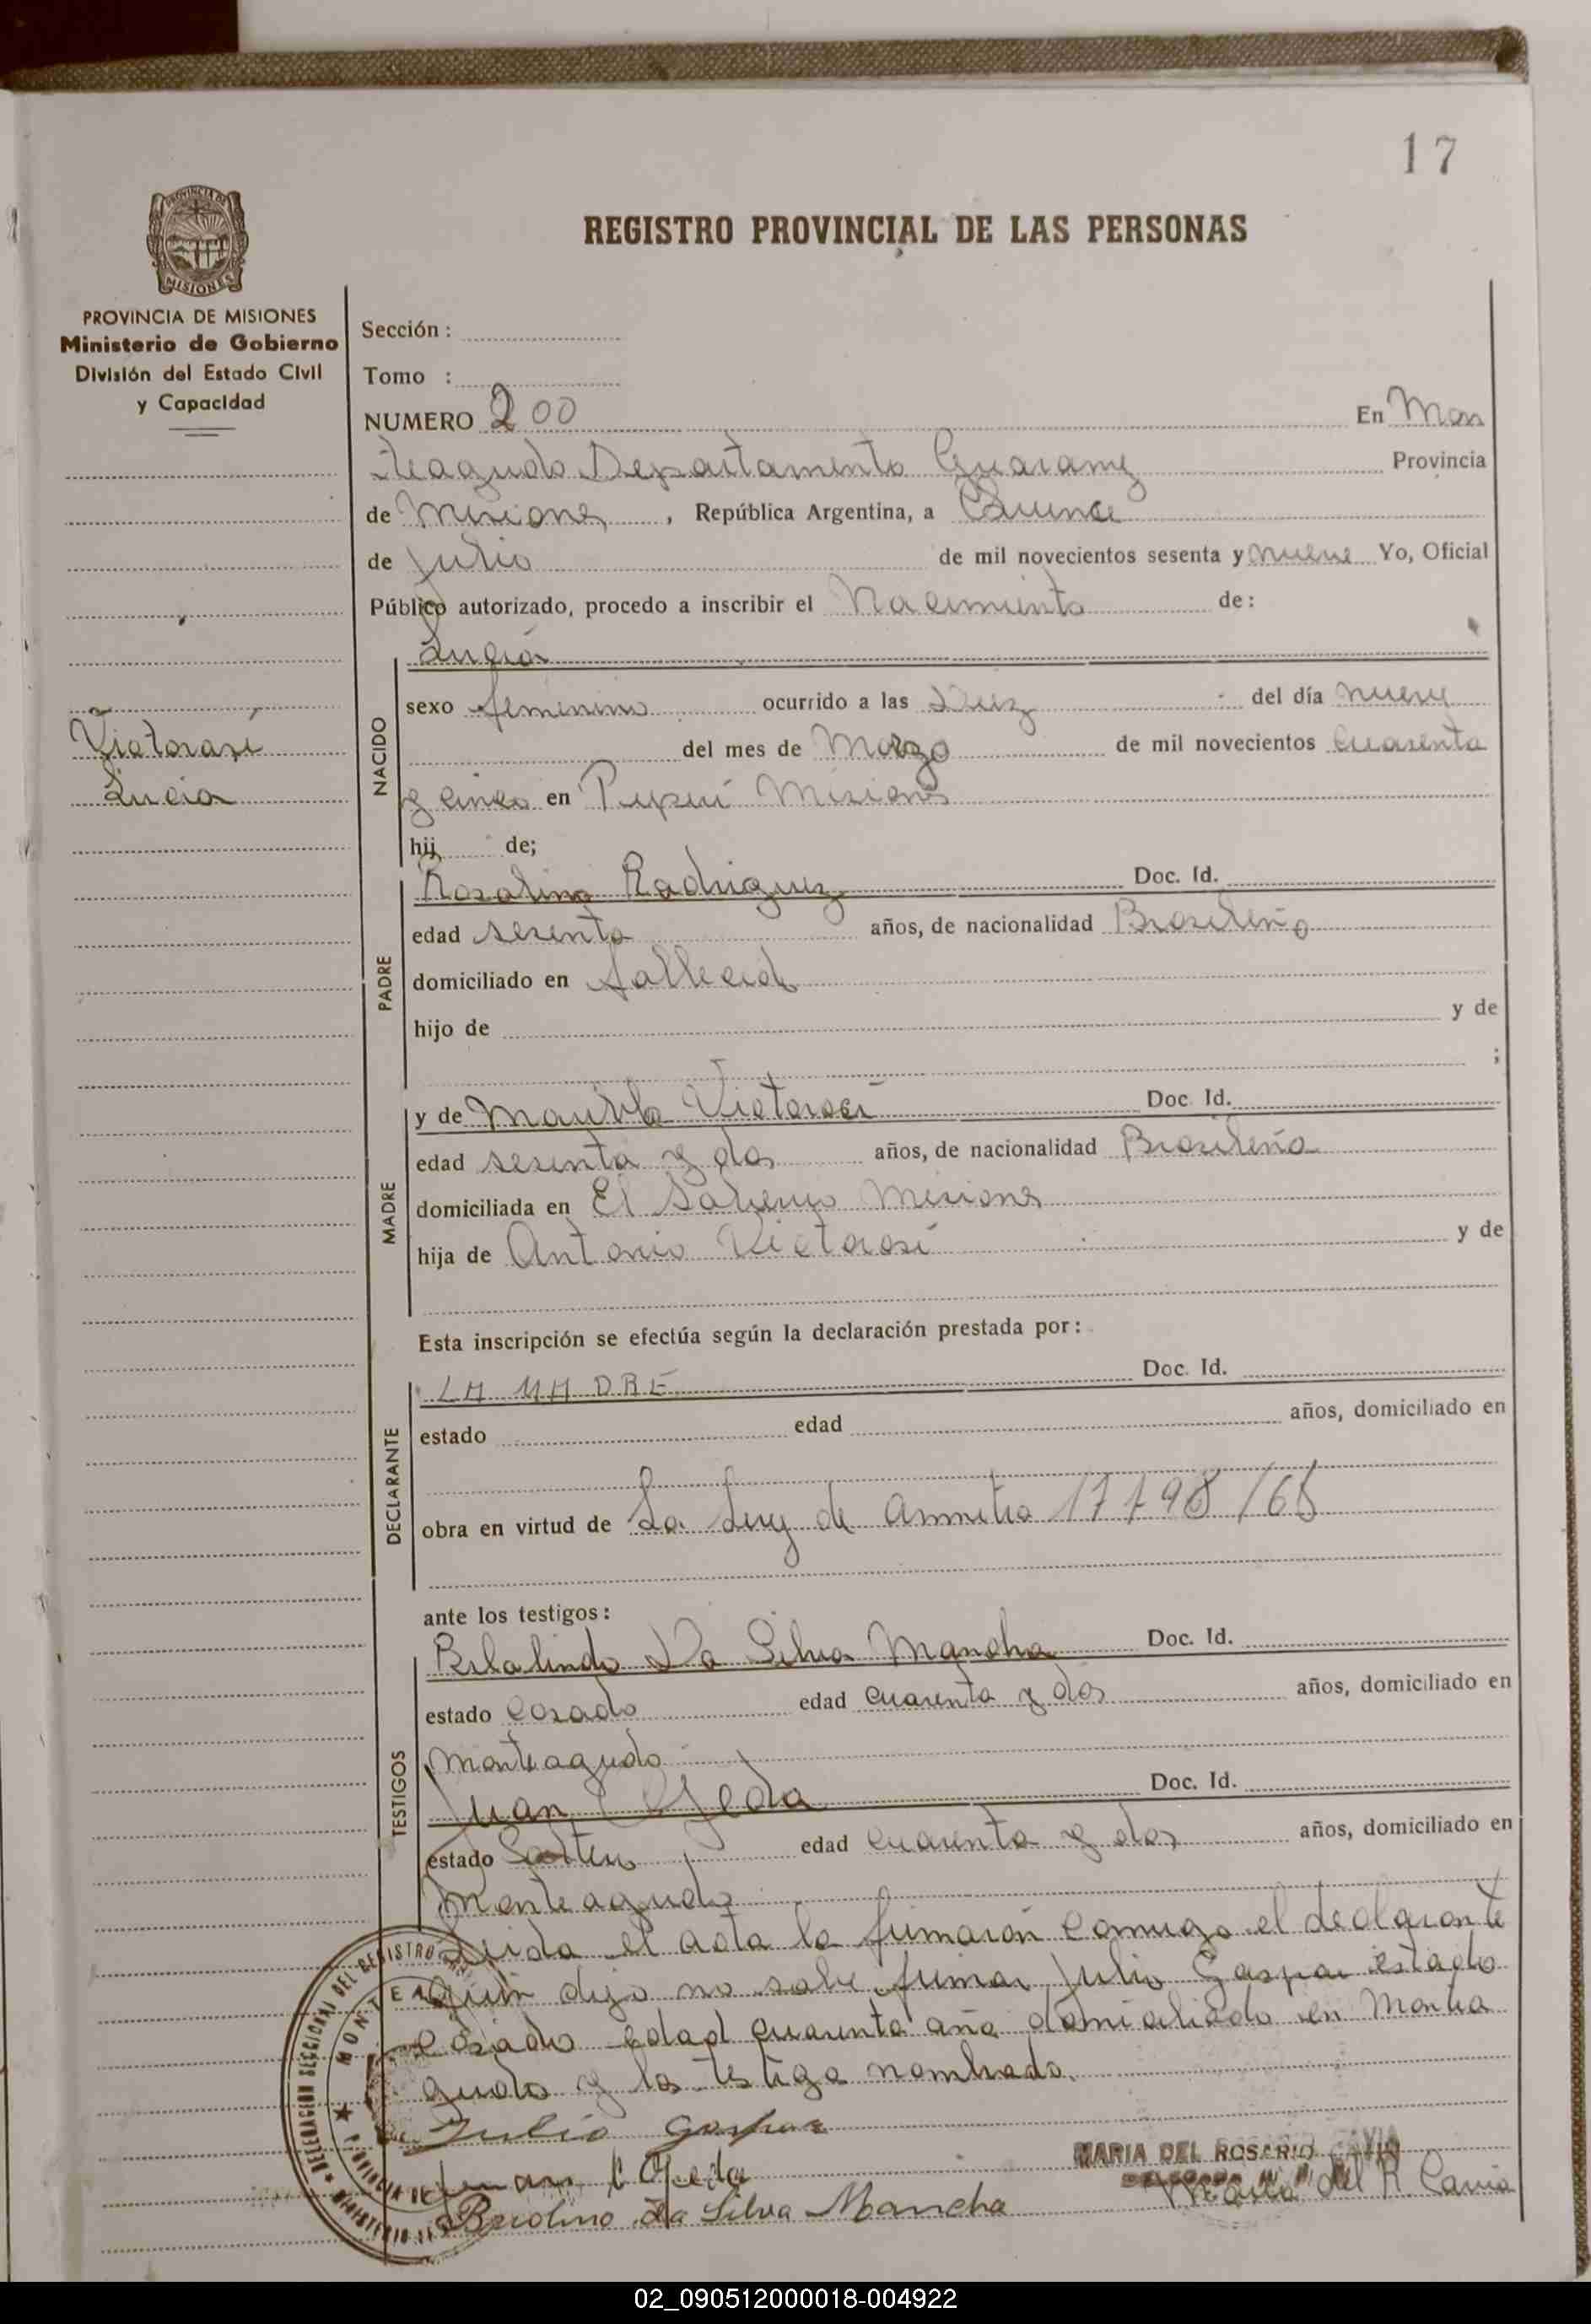 17
REGISTRO PROVINCIAL DE LAS PERSONAS
PROVINCIA DE MISIONES
Ministerio de Gobierno
División del Estado Civil
y Capacidad
Victorasi
Lucia
Sección :
Tomo :
NUMERO 200 En Mon
teagudo Departamento Guarany Provincia
de Misiones, República Argentina, a Quince
de Julio de mil novecientos sesenta y nueve Yo, Oficial
Público autorizado, procedo a inscribir el Nacimiento de:
NACIDO
Lucia
sexo femenino ocurrido a las Diez del día nueve
del mes de Marzo de mil novecientos cuarenta
y cinco en Pepirí Misiones
hij de;
PADRE
Rosalino Rodriguez Doc. Id.
edad sesenta años, de nacionalidad Brasileño
domiciliado en Fallecido
hijo de y de
;
MADRE
y de Victorasi Doc. Id.
edad sesenta y dos años, de nacionalidad Brasileña
domiciliada en El Soberbio Misiones
hija de Antonio Victorasi y de
Esta inscripción se efectúa según la declaración prestada por:
DECLARANTE
LA MADRE Doc. Id.
estado edad años, domiciliado en
obra en virtud de La Ley de 
ante los testigos:
TESTIGOS
Da Silva Mancha Doc. Id.
estado casado edad cuarenta y dos años, domiciliado en
Monteagudo
Juan Ojeda Doc. Id.
estado Soltero edad cuarenta y dos años, domiciliado en
Monteagudo
Leida el acta la firmarón conmigo el declarante
quien dijo no sabe firmar Julio Gaspar estado
casado edad cuarenta año domiciliado en Montea
gudo y los testigo nombrado.
Julio Gaspar
Juan Ojeda
da Silva Mancha
MARIA DEL ROSARIO CAVIA
Maria del R. Cavia
02_090512000018-004922